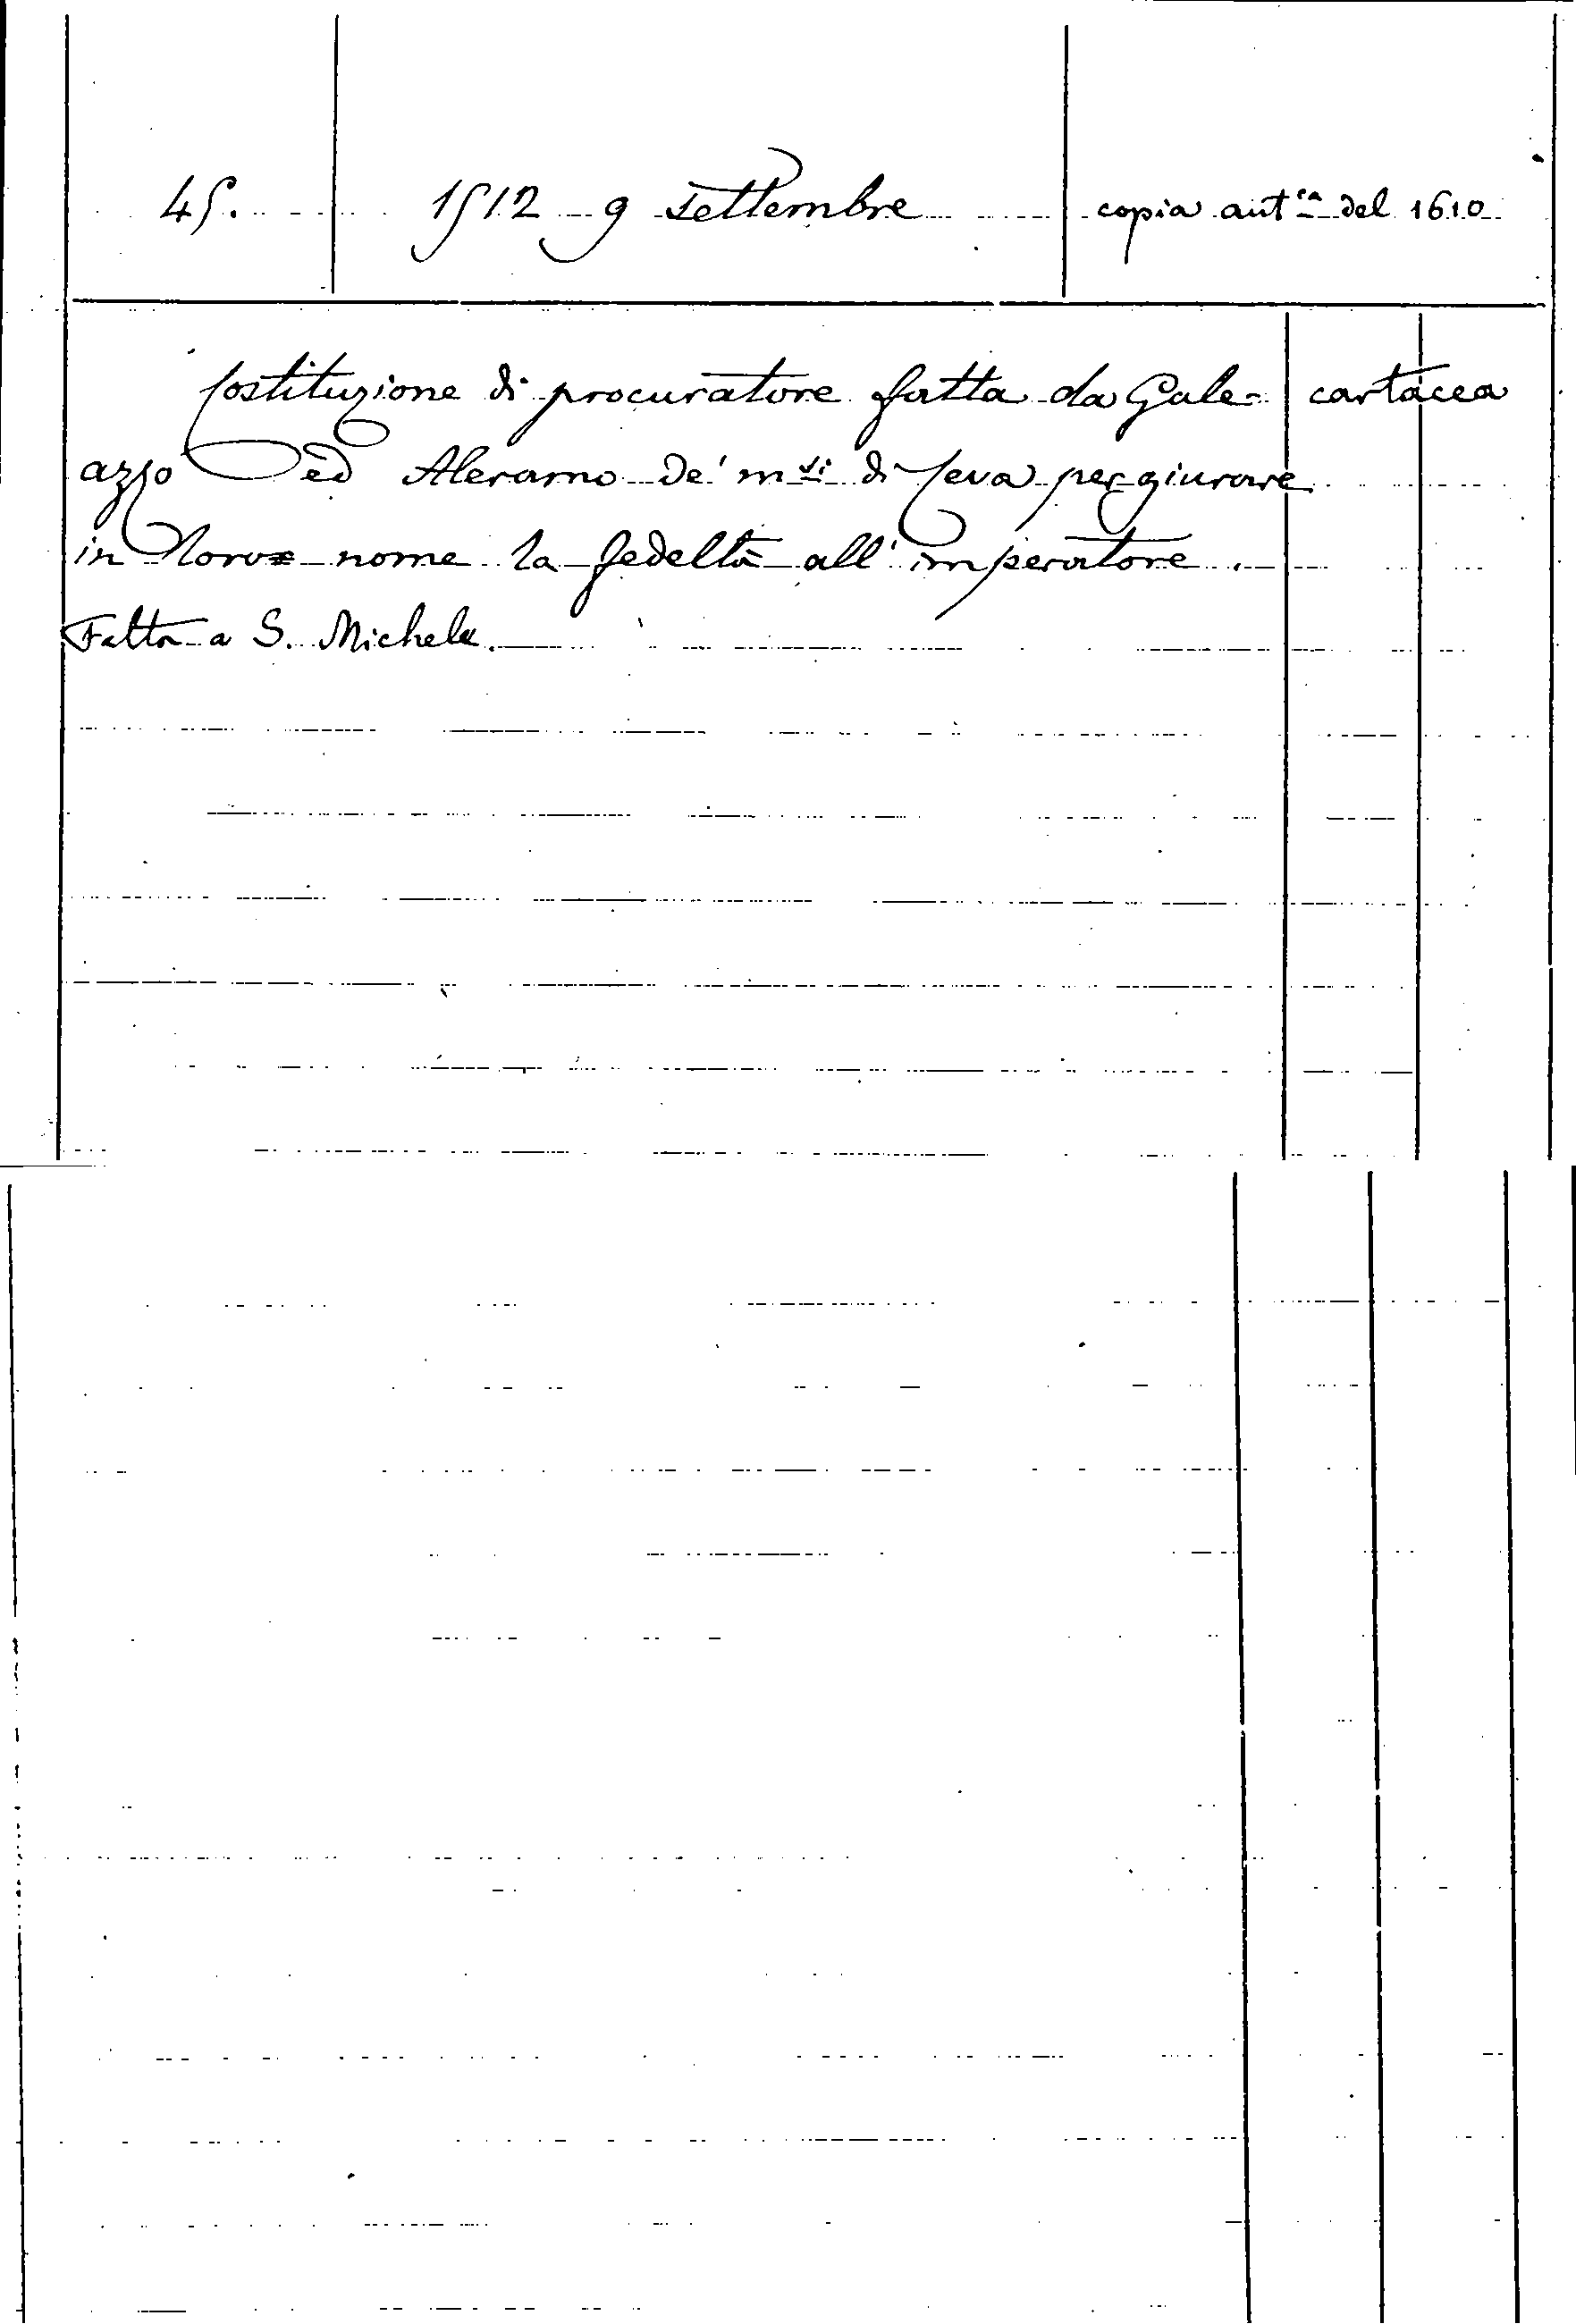 45. 1512 9 settembre copia aut.ca del 1610
Costituzione di procuratore fatta da Gale- cartacea
azzo ed Aleramo de' m.si di Ceva per giurare
in loro nome la fedeltà all'imperatore.
Fatta a S. Michele.